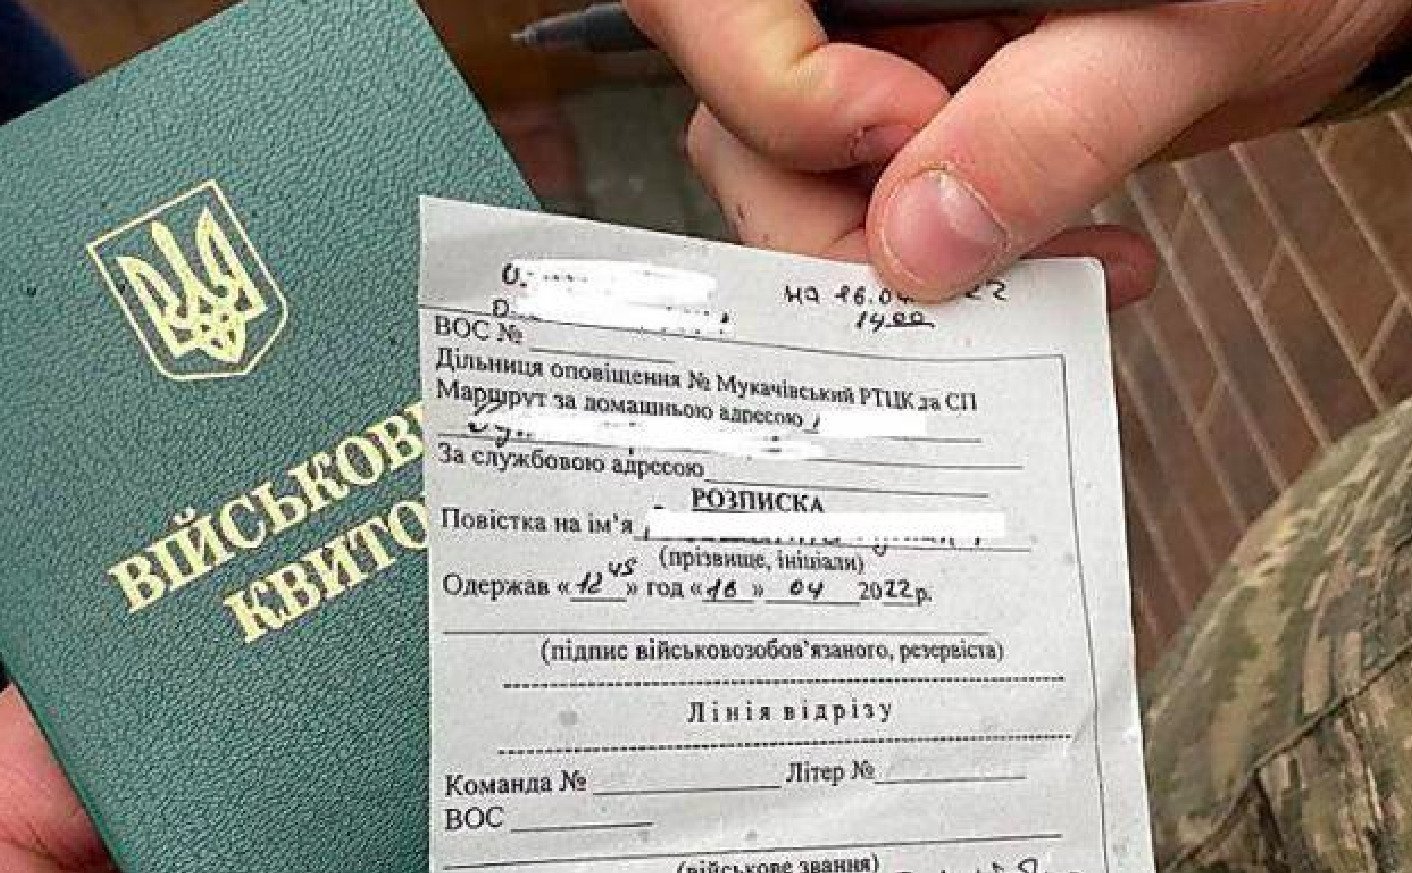 ВІЙСЬКОВ
КВИТО
на 16.04 22
14 00
ВОС №
Дільниця оповіщення № Мукачівський РТЦК да СП
Маршрут за домашньою адресою
За службовою адресою
РОЗПИСКА
Повістка на ім'я
(прізвище, ініціали)
Одержав «12 45» год «16» 04 2022 р.
(підпис військовозобов'язаного, резервіста)
Лінія відрізу
Команда № Літер №
ВОС
(військове звання)